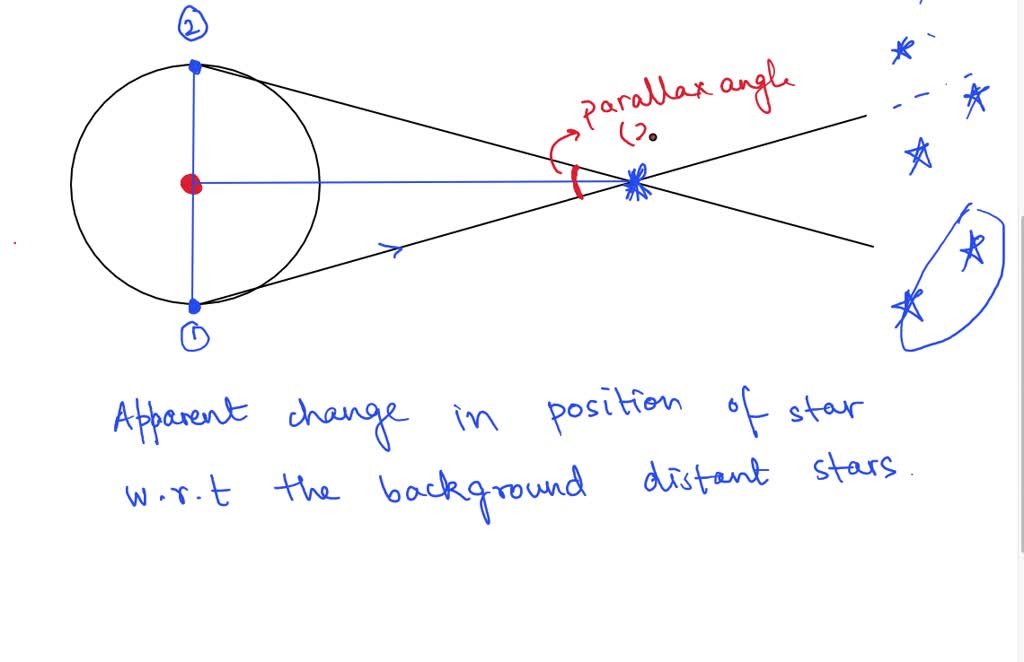 ②
parallax angle
(2
①
Apparent change in position of star
w.r.t the background distant stars